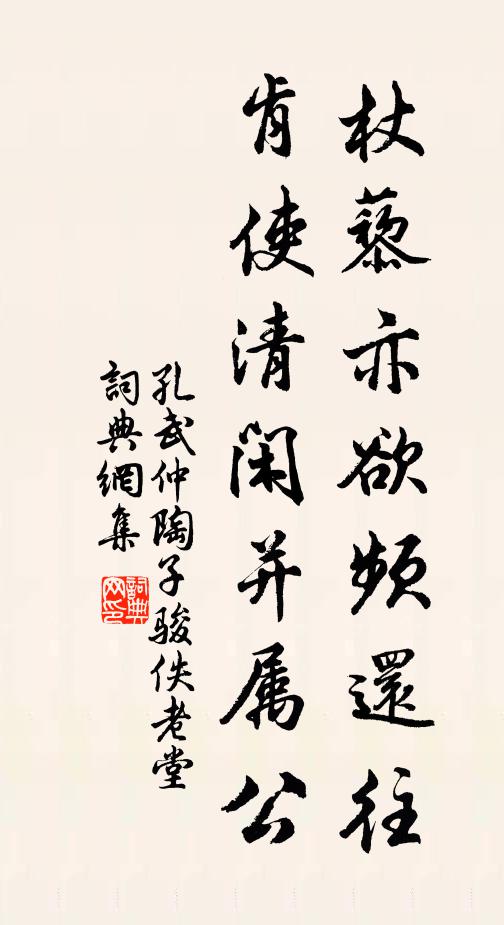 杖藜亦欲频還往
肯使清閑并属公
孔武仲陶子駿佚老堂
詞典網集
詞典網印